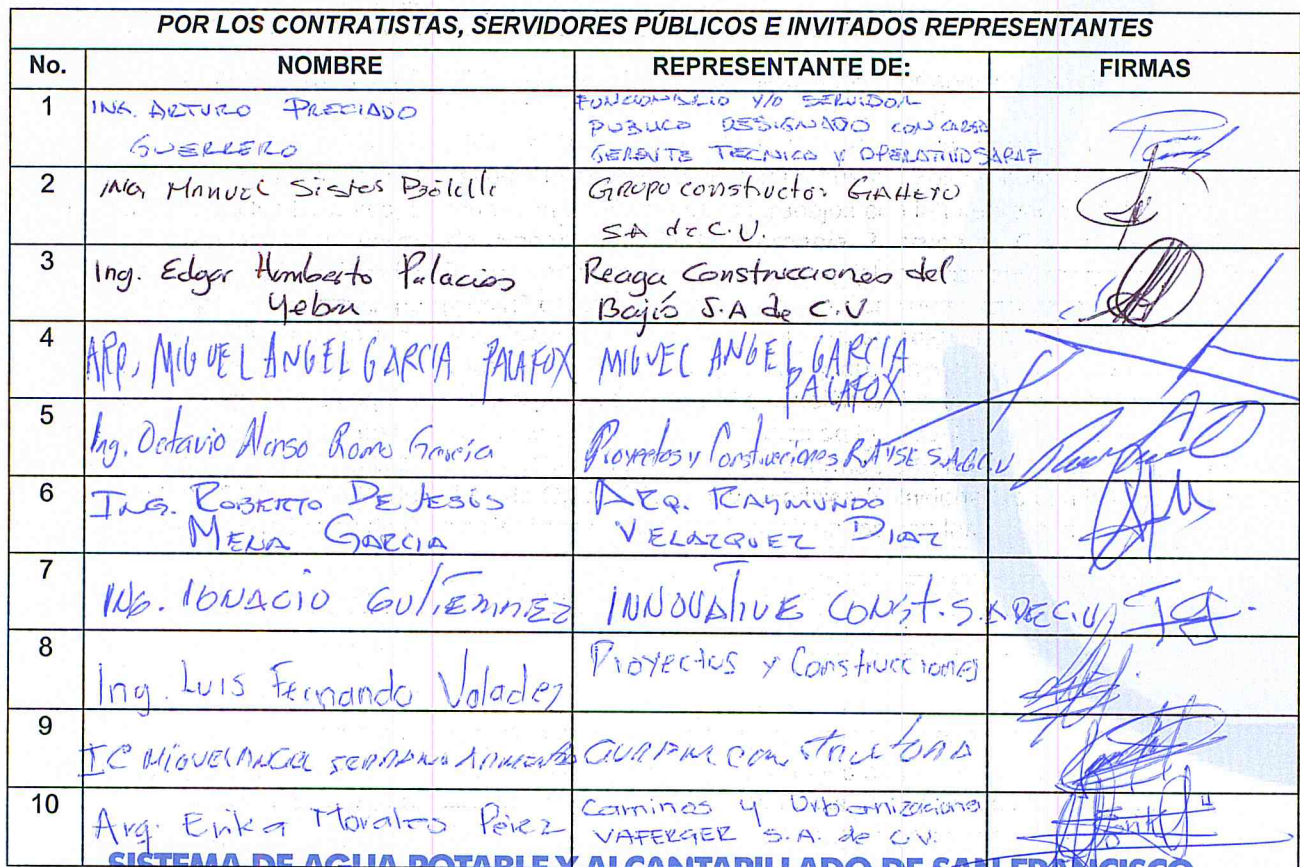 POR LOS CONTRATISTAS, SERVIDORES PÚBLICOS E INVITADOS REPRESENTANTES
No. NOMBRE REPRESENTANTE DE: FIRMAS
1 ING. ARTURO PRECIADO
GUERRERO
FUNCIONARIO Y/O SERVIDOR
PUBLICO DESIGNADO CON CARGO
GERENTE TECNICO Y OPERATIVO SAPAF
2 ING Manuel Sixtos
Grupo constructor GAHETO
SA de C.V.
3 Ing. Edgar Humberto Palacios
Yebra
Reaga Construcciones del
Bajío S.A de C.V
4 ARQ, MIGUEL ANGEL GARCIA PALAFOX
MIGUEL ANGEL GARCIA
PALAFOX
5 Ing. Octavio Alonso Romo García
Proyectos y Construcciones RAYSE S.A de C.V
6 ING. ROBERTO DE JESÚS
MENA GARCIA
ARQ. RAYMUNDO
VELAZQUEZ DIAZ
7 ING. IGNACIO GUTIERREZ
INNOVATIVE CONST. S.A DE C.V,
8 Ing. Luis Fernando Valadez
Proyectos y Construcciones
9 IC MIGUEL ANGEL SERRANO
constructora
10 Arq. Erika Morales Pérez
Caminos y Urbanizaciones
VAFERGER S.A. de C.V.
SISTEMA DE AGUA POTABLE Y ALCANTARILLADO DE SAN FRANCISCO